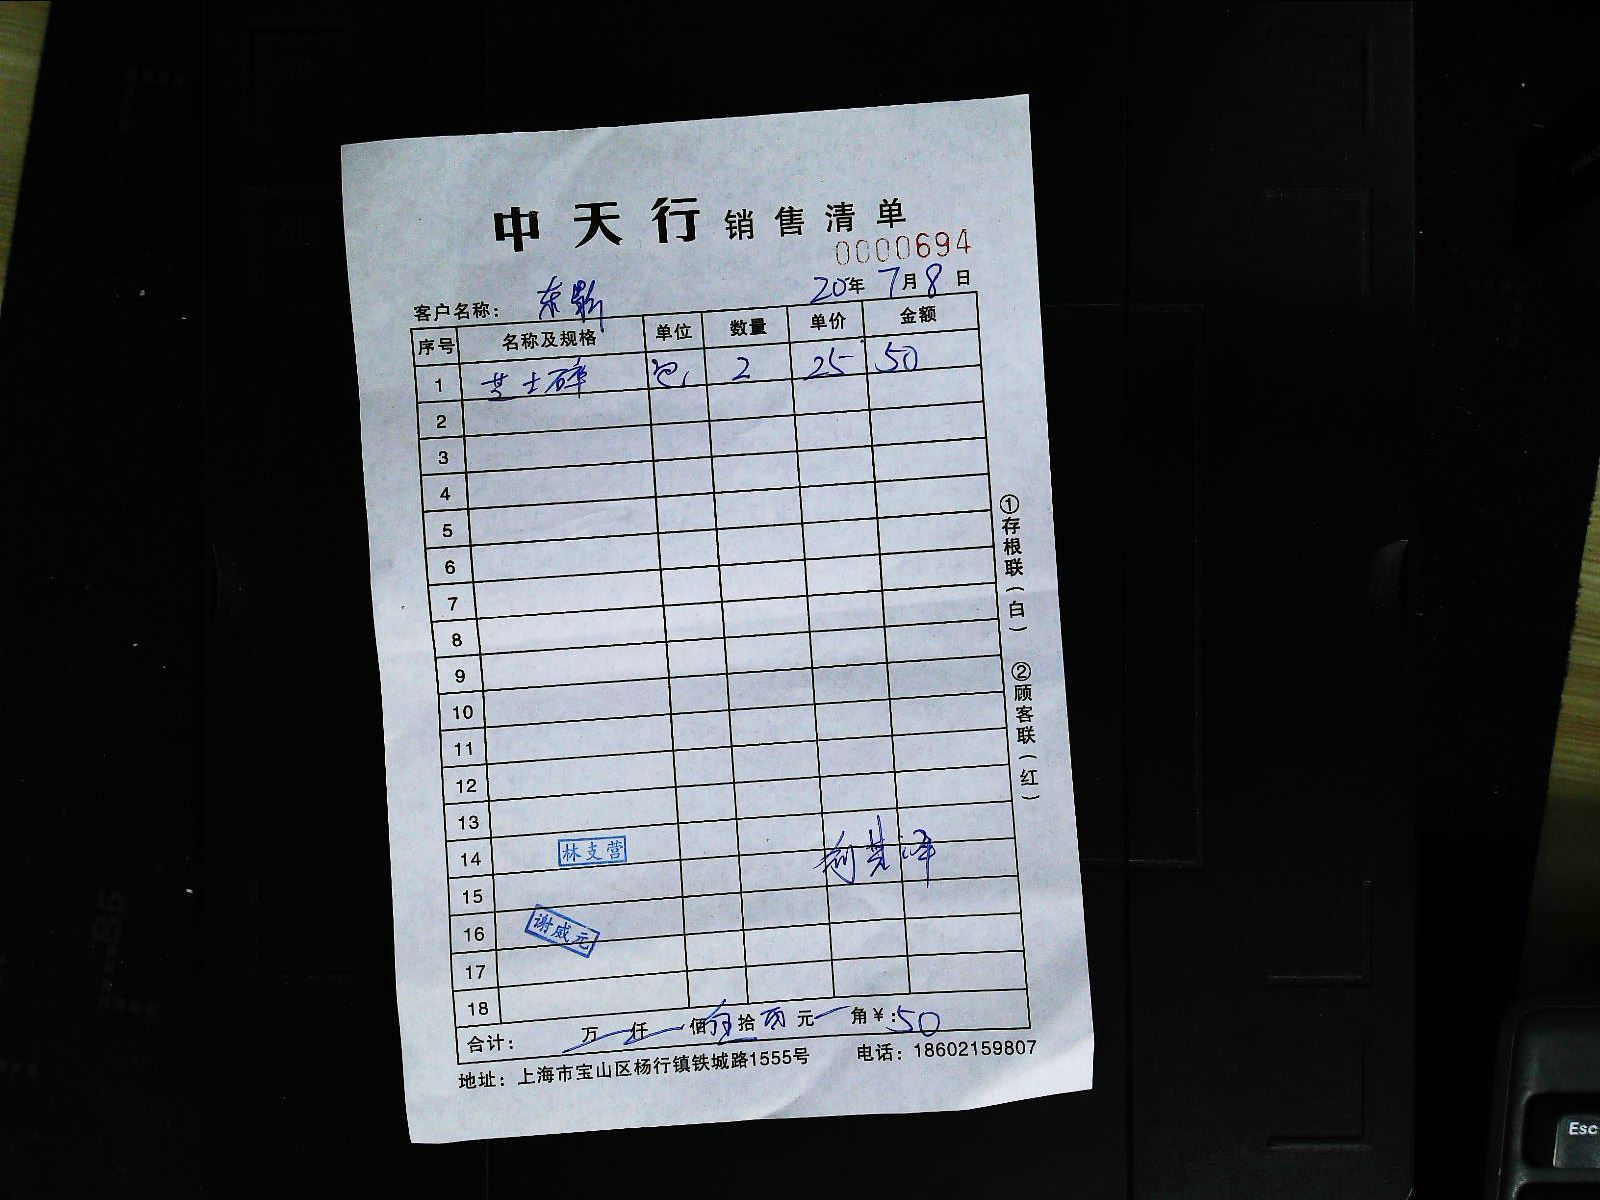 中天行 销售清单
0000694
20年7月8日
客户名称：东
序号 名称及规格 单位 数量 单价 金额
1 芝士碎 包 2 25 50
2
3
4
5
6
7
8
9
10
11
12
13
14 林支营
15
16 谢威元
17
18
合计： 万 仟 佰 伍 拾 元 角 ￥:50
地址：上海市宝山区杨行镇铁城路1555号 电话：18602159807
①存根联（白） ②顾客联（红）
Esc